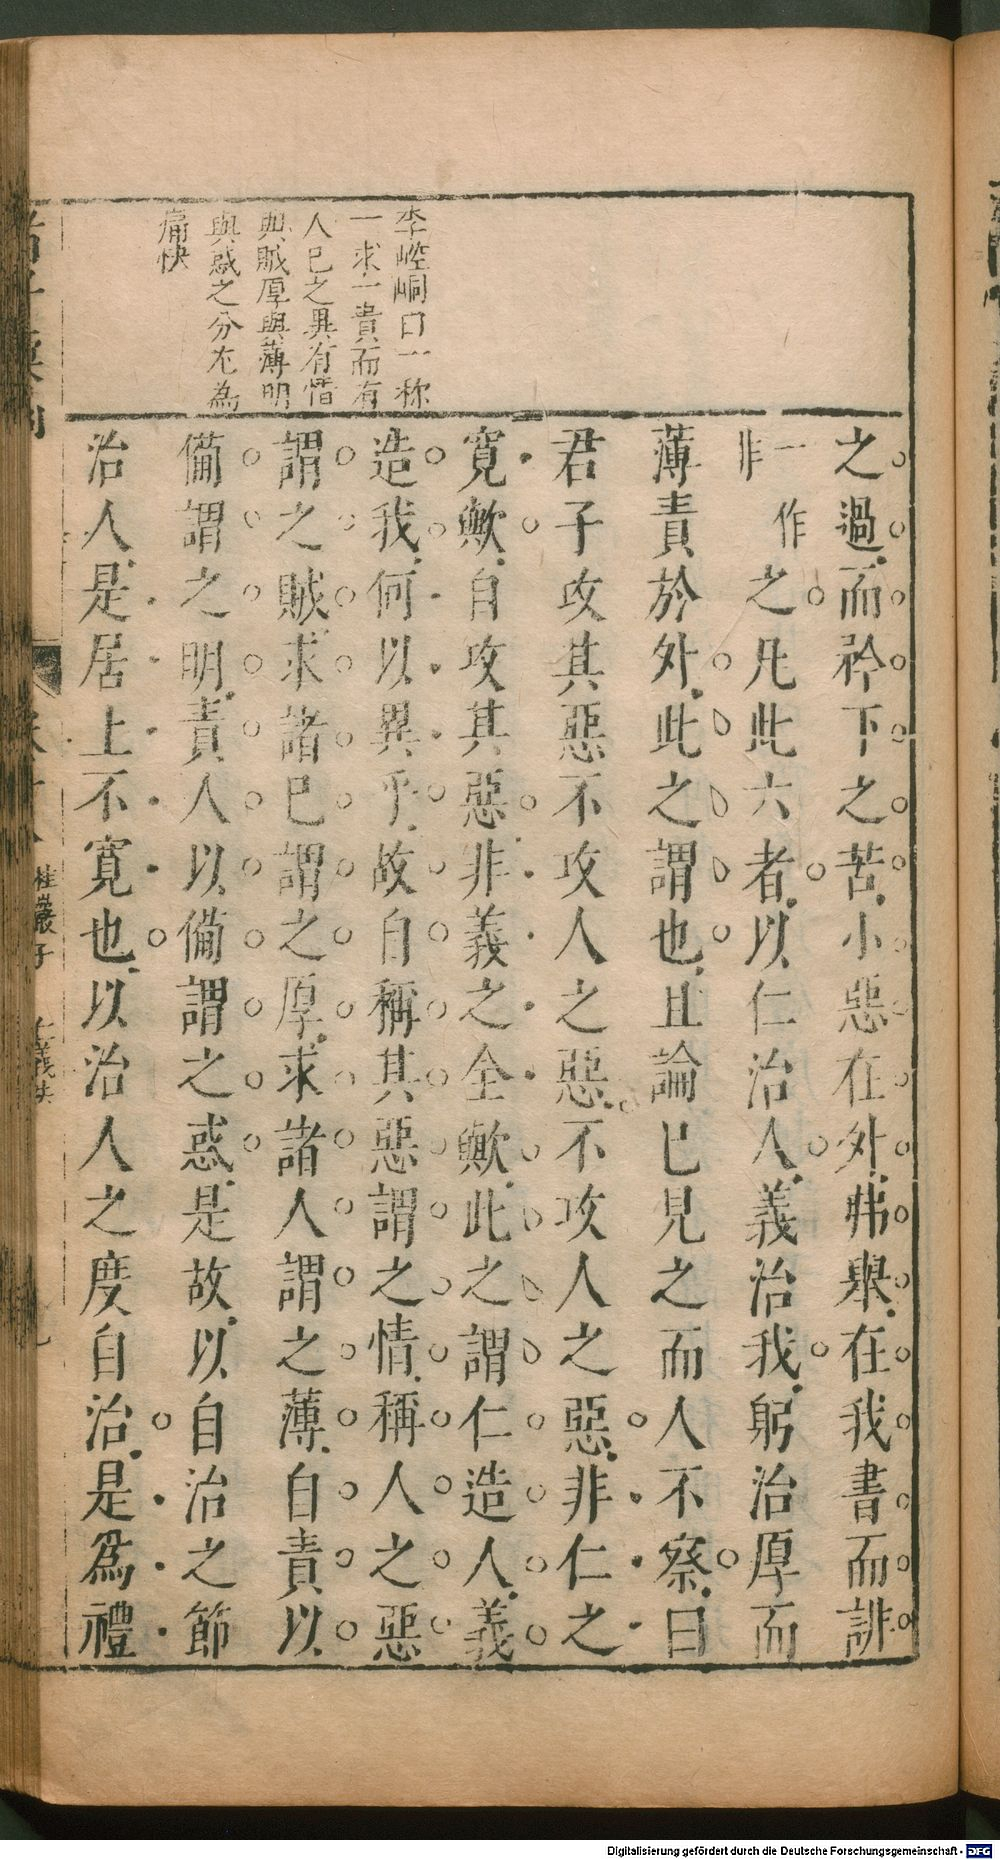 李崆峒曰一称
一求一責而有
人已之異有情
與賊厚與薄明
與惑之分尤為
痛快
之過而矜下之苦小惡在外弗舉在我書而誹
一作
非
之凡此六者以仁治人義治我躬治厚而
薄責於外此之謂也且論已見之而人不察曰
君子攻其惡不攻人之惡不攻人之惡非仁之
寛歟自攻其惡非義之全歟此之謂仁造人義
造我何以異乎故自稱其惡謂之情稱人之惡
謂之賊求諸已謂之厚求諸人謂之薄自責以
備謂之明責人以備謂之惑是故以自治之節
治人是居上不寛也以治人之度自治是爲禮
桂巖子
Digitalisierung gefördert durch die Deutsche Forschungsgemeinschaft - DFG